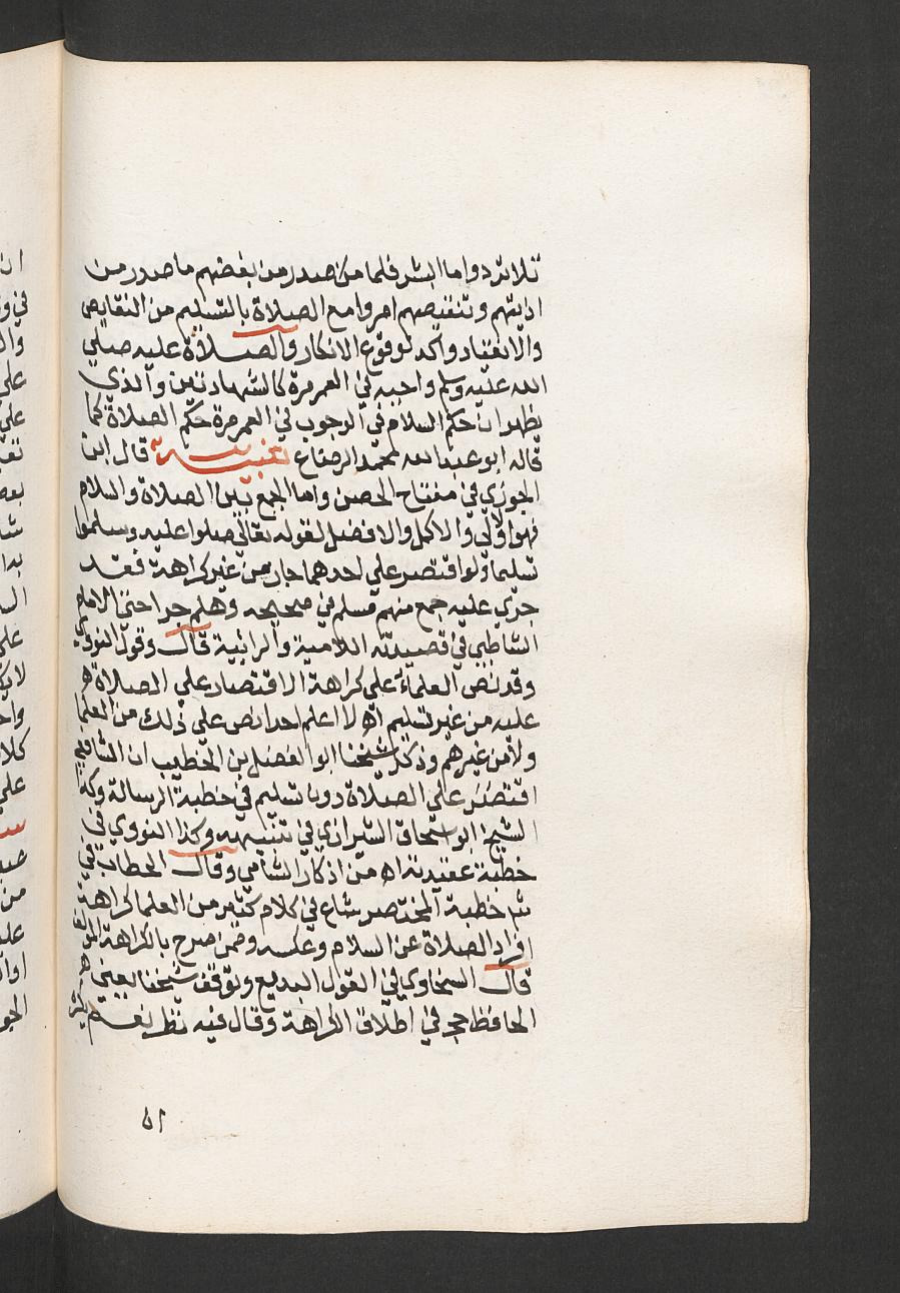 تلا تردد واما البشر فلما صدر من بعضهم ما صدر من
اذيتهم وتنقيصهم امروا مع الصلاة بالتسليم من النقايص
والانقياد واكد لوقوع الانكار والصلاة عليه صلي
الله عليه وسلم واجبه في العمر مرة كالشهادتين والذي
يظهر ان حكم السلام في الوجوب في العمر مرة حكم الصلاة كما
قاله ابو عبد الله محمد الرصاع تنبيه قال ابن
الجوزي في مفتاح الحصن واما الجمع بين الصلاة والسلام
فهو اولي والاكمل والافضل لقوله تعالي صلوا عليه وسلموا
تسليما ولو اقتصر علي احدهما جاز من غير كراهة فقد
جري عليه جمع منهم مسلم في صحيحه وهلم جرا حتي الامام
الشاطبي في قصيدته اللامية والرائية قال وقول النووي
وقد نص العلماء علي كراهة الاقتصار علي الصلاة
عليه من غير تسليم اه لا اعلم احدا نص علي ذلك من العلما
ولا من غيرهم وذكر شيخنا ابو الفضل بن الخطيب ان الشافعي
اقتصر علي الصلاة دون تسليم في خطبة الرسالة وكذا
الشيخ ابو اسحاق الشيرازي في تنبيهه وكذا النووي في
خطبة عقيدته اه من اذكار الشامي وقال الحطاب في
خطبة المختصر شاع في كلام كثير من العلما كراهة
افراد الصلاة عن السلام وعكسه وممن صرح بالكراهة
قال السخاوي في القول البديع وتوقف شيخنا يعني
الحافظ حجر في اطلاق الكراهة وقال فيه نظر نعم يكره
٥١